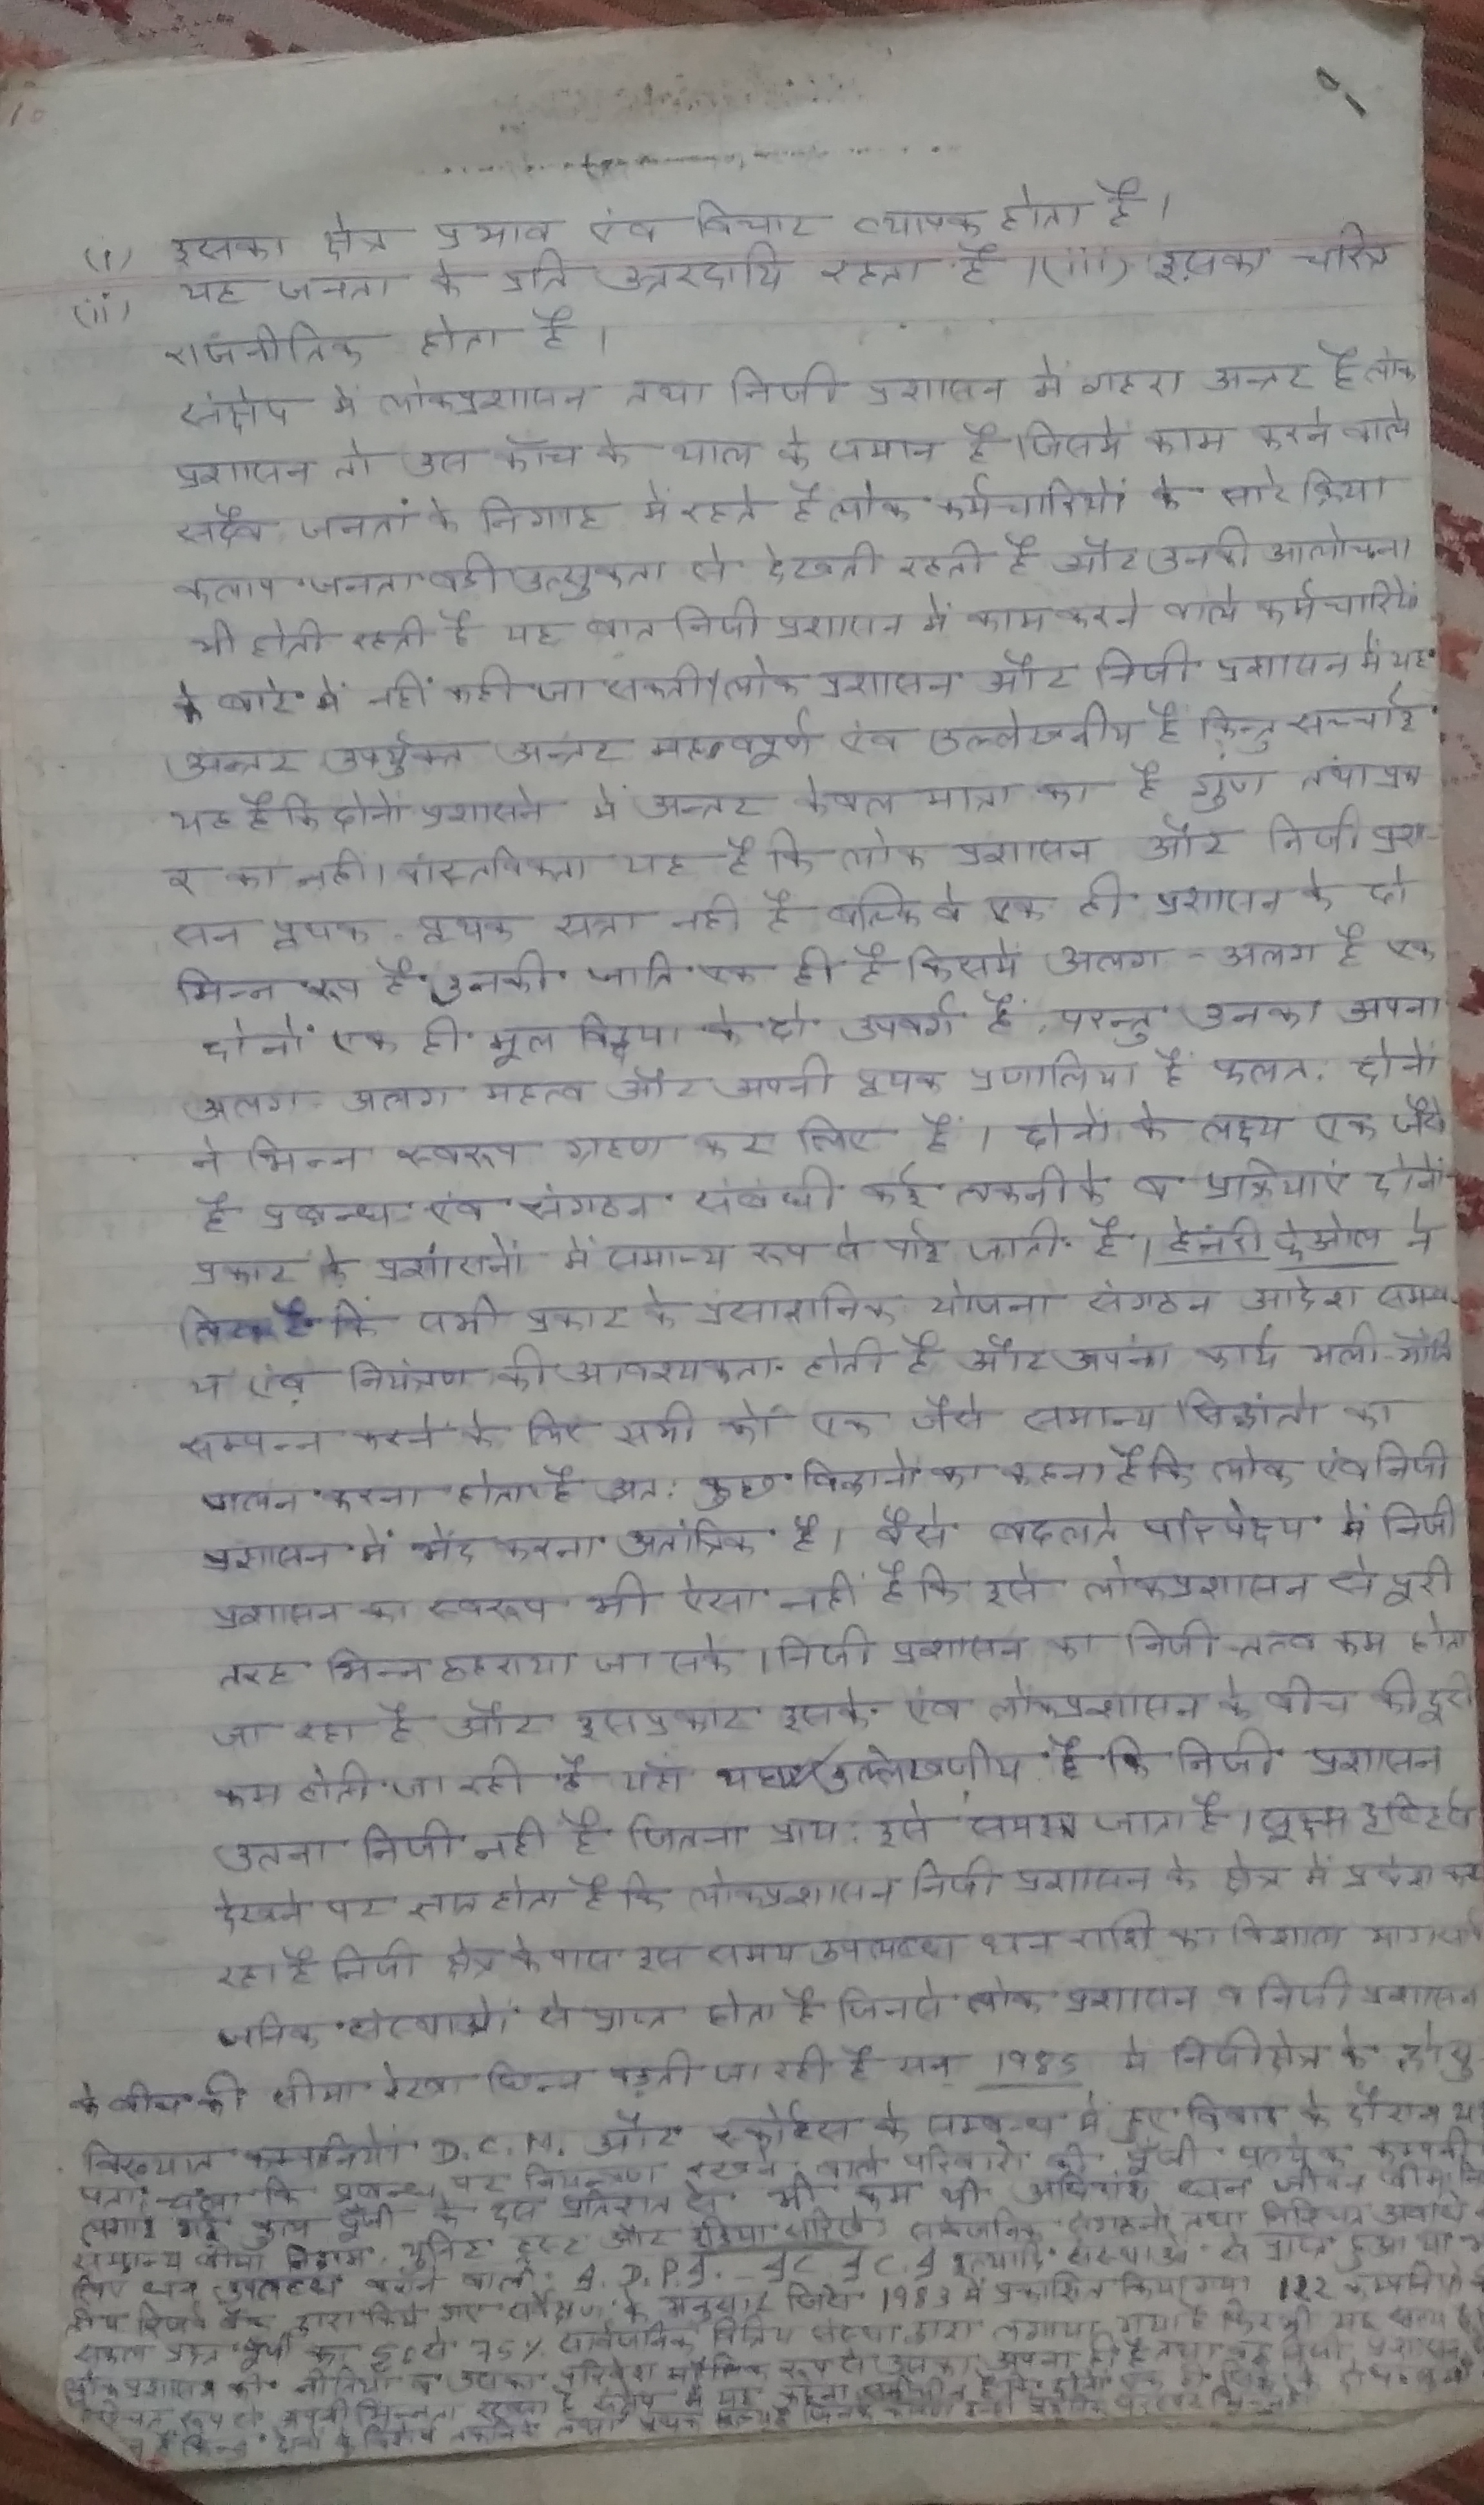 (i) इसका क्षेत्र प्रभाव एंव विचार व्यापक होता है।
(ii) यह जनता के प्रति उत्तरदायि रहता है ।(iii) इसका चरित्र
राजनीतिक होता है ।
संक्षेप में लोकप्रशासन तथा निजी प्रशासन में गहरा अन्तर है लोक
प्रशासन तो उस काँच के थाल के समान है जिसमें काम करने वाले
सदैव जनता के निगाह में रहते है लोक कर्मचारियों के सारे क्रिया
कलाप जनता बडी उत्सुकता से देखती रहती है और उनकी आलोचना
भी होती रहती है यह बात निजी प्रशासन में काम करने वाले कर्मचारियों
के बारे में नहीं कही जा सकती। लोक प्रशासन और निजी प्रशासन में यह
अन्तर उपर्युक्त अन्तर महत्वपूर्ण एंव उल्लेखनीय हैं किन्तु सच्चाई
यह है कि दोनों प्रशासनो में अन्तर केवल मात्रा का है गुण तथा प्रका
र का नही। वास्तविकता यह है कि लोक प्रशासन और निजी प्रशा-
सन पृथक - पृथक सत्ता नही है बल्कि वे एक ही प्रशासन के दो
भिन्न रूप है उनकी जाति एक ही है किसमें अलग - अलग है एक
दोनों एक ही मूल विद्या के दो उपवर्ग हैं परन्तु उनका अपना
अलग - अलग महत्व और अपनी पृथक प्रणालिया हैं फलत: दोनों
ने भिन्न स्वरूप ग्रहण कर लिए हैं । दोनों के लक्ष्य एक जैसे
है प्रबन्ध एंव संगठन संबंधी कई तकनीके व प्रक्रियाएं दोनों
प्रकार के प्रशासनों में समान्य रूप से पाई जाती है । हेनरी फेओल ने
लिखा है कि सभी प्रकार के प्रसाशनिक योजना संगठन आदेश समन्व-
य एंव नियंत्रण की आवश्यकता होती है और अपना कार्य भली-भाँति
सम्पन्न करने के लिए सभी को एक जैसे समान्य सिद्धांतो का
पालन करना होता है अत: कुछ विद्वानों का कहना है कि लोक एंव निजी
प्रशासन में भेद करना अतांत्रिक है। वैसे बदलते परिपेक्ष्य में निजी
प्रशासन का स्वरूप भी ऐसा नहीं है कि इसे लोकप्रशासन से पूरी
तरह भिन्न ठहराया जा सके । निजी प्रशासन का निजी तत्व कम होता
जा रहा है और इस प्रकार इसके एंव लोकप्रशासन के बीच की दूरी
कम होती जा रही है यहां उल्लेखणीय है कि निजी प्रशासन
उतना निजी नही है जितना प्राय: इसे समझा जाता है । सूक्ष्म दृष्टि से
देखने पर ज्ञात होता है कि लोकप्रशासन निजी प्रशासन के क्षेत्र में प्रवेश कर
रहा है निजी क्षेत्र के पास इस समय उपलब्ध धन राशि का विशाल भाग सार्व
जनिक संस्थाओं से प्राप्त होता है जिनसे लोक प्रशासन व निजी प्रशासन
के बीच की सीमा रेखा पड़ती जा रही है सन् 1985 में निजी क्षेत्र के दो सु
विख्यात कम्पनियों D.C.M. और स्कोर्टस के सम्बन्ध में हुए विवाद के दौरान यह
पता चला कि प्रबन्ध पर नियन्त्रण रखने वाले परिवारो की पूँजी प्रत्येक कम्पनी
लगाई गई कुल पूँजी के दस प्रतिशत से भी कम थी अधिकांश धन जीवन बीमा नि
समान्य बीमा निगम, युनिट ट्रस्ट और सार्वजनिक संगठनो तथा निश्चित अवधि
लिए धन उपलब्ध कराने वाली इत्यादि संस्थाओं से प्राप्त हुआ था
रिजर्व बैंक द्वारा किये गए सर्वेक्षण के अनुसार जिसे 1983 में प्रकाशित किया गया 122 कम्पनियों
पूंजी का 50 से 75% सार्वजनिक वित्तिय संस्था द्वारा लगाया गया है फिर भी यह सत्य
लोकप्रशासन की नीतियां व उसका परिवेश मौलिक रूप से उसका अपना ही है